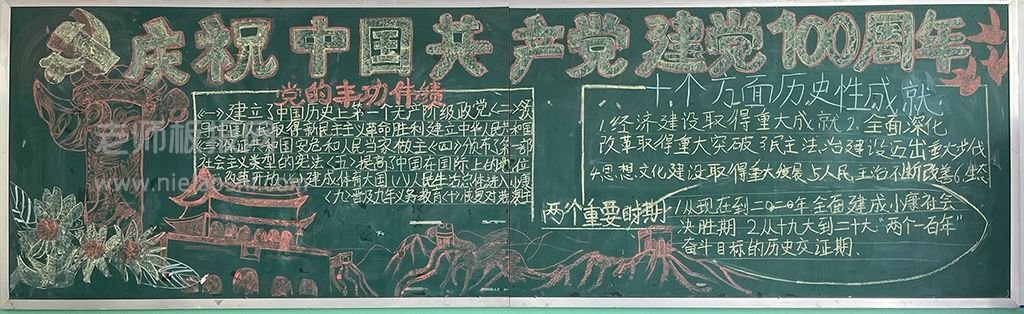 庆祝中国共产党建党100周年
党的丰功伟绩
《一》建立了中国历史上第一个无产阶级政党《二》领
导中国人民取得新民主义革命胜利建立中华人民共和国
《三》保证共和国安危和人民当家做主《四》颁布第一部
社会主义类型的宪法《五》提高了中国在国际上的地位
改革开放《七》建成体育大国《八》人民生活总体进入小康
《九》普及九年义务教育《十》
十个方面历史性成就:
1.经济建设取得重大成就2.全面深化
改革取得重大突破3民主法治建设迈出重大步伐
4思想文化建设取得重大发展5人民生活不断改善6.生态
两个重要时期
1从现在到二0二0年全面建成小康社会
决胜期 2.从十九大到二十大"两个一百年"
奋斗目标的历史交证期.
老师板
www.nie